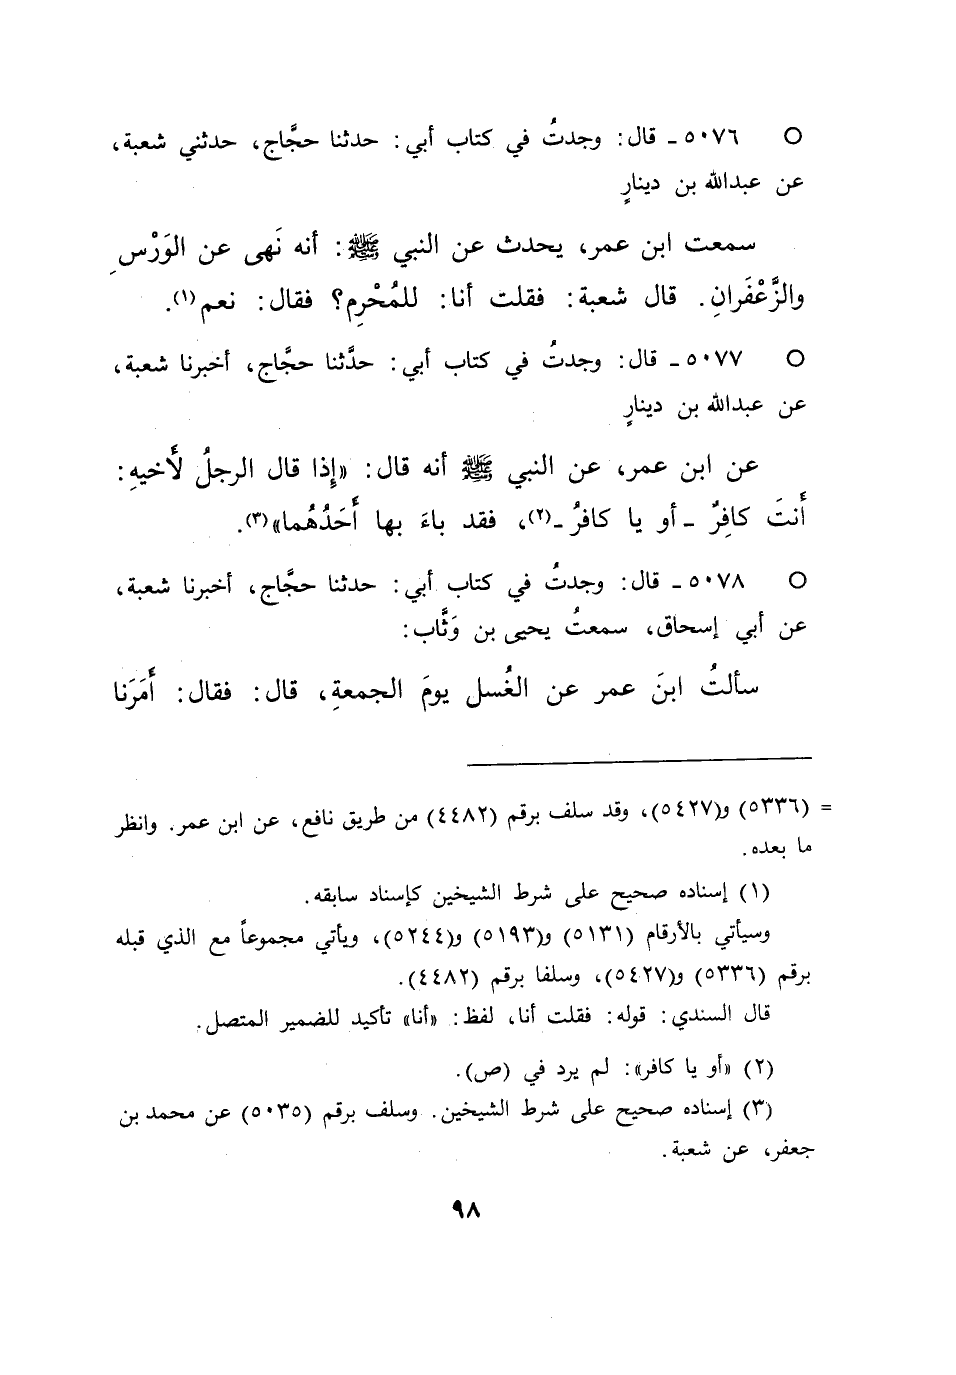 ○ ٥٠٧٦ـ قال: وجدتُ في كتاب أبي: حدثنا حجَّاج، حدثني شعبة،
عن عبدالله بن دينارٍ
سمعت ابن عمر، يحدث عن النبي ﷺ: أنه نَهى عن الوَرْسِ
والزَّعْفَرانِ. قال شعبة: فقلت أنا: للمُحْرِم؟ فقال: نعم(١).
○ ٥٠٧٧ـ قال: وجدتُ في كتاب أبي: حدَّثنا حجَّاج، أخبرنا شعبة،
عن عبدالله بن دينارٍ
عن ابن عمر، عن النبي ﷺ أنه قال: «إِذا قال الرجلُ لأَخيهِ:
أَنتَ كافِرٌ ـ أو يا كافرُ ـ(٢)، فقد باءَ بها أَحَدُهُما»(٣).
○ ٥٠٧٨ـ قال: وجدتُ في كتاب أبي: حدثنا حجَّاج، أخبرنا شعبة،
عن أبي إسحاق، سمعتُ يحيى بن وَثَّاب:
سألتُ ابنَ عمر عن الغُسل يومَ الجمعةِ، قال: فقال: أَمَرَنا
= (٥٣٣٦) و(٥٤٢٧)، وقد سلف برقم (٤٤٨٢) من طريق نافع، عن ابن عمر. وانظر
ما بعده.
(١) إسناده صحيح على شرط الشيخين كإسناد سابقه.
وسيأتي بالأرقام (٥١٣١) و(٥١٩٣) و(٥٢٤٤)، ويأتي مجموعاً مع الذي قبله
برقم (٥٣٣٦) و(٥٤٢٧)، وسلفا برقم (٤٤٨٢).
قال السندي: قوله: فقلت أنا، لفظ: «أنا» تأكيد للضمير المتصل.
(٢) «أو يا كافر»: لم يرد في (ص).
(٣) إسناده صحيح على شرط الشيخين. وسلف برقم (٥٠٣٥) عن محمد بن
جعفر، عن شعبة.
٩٨